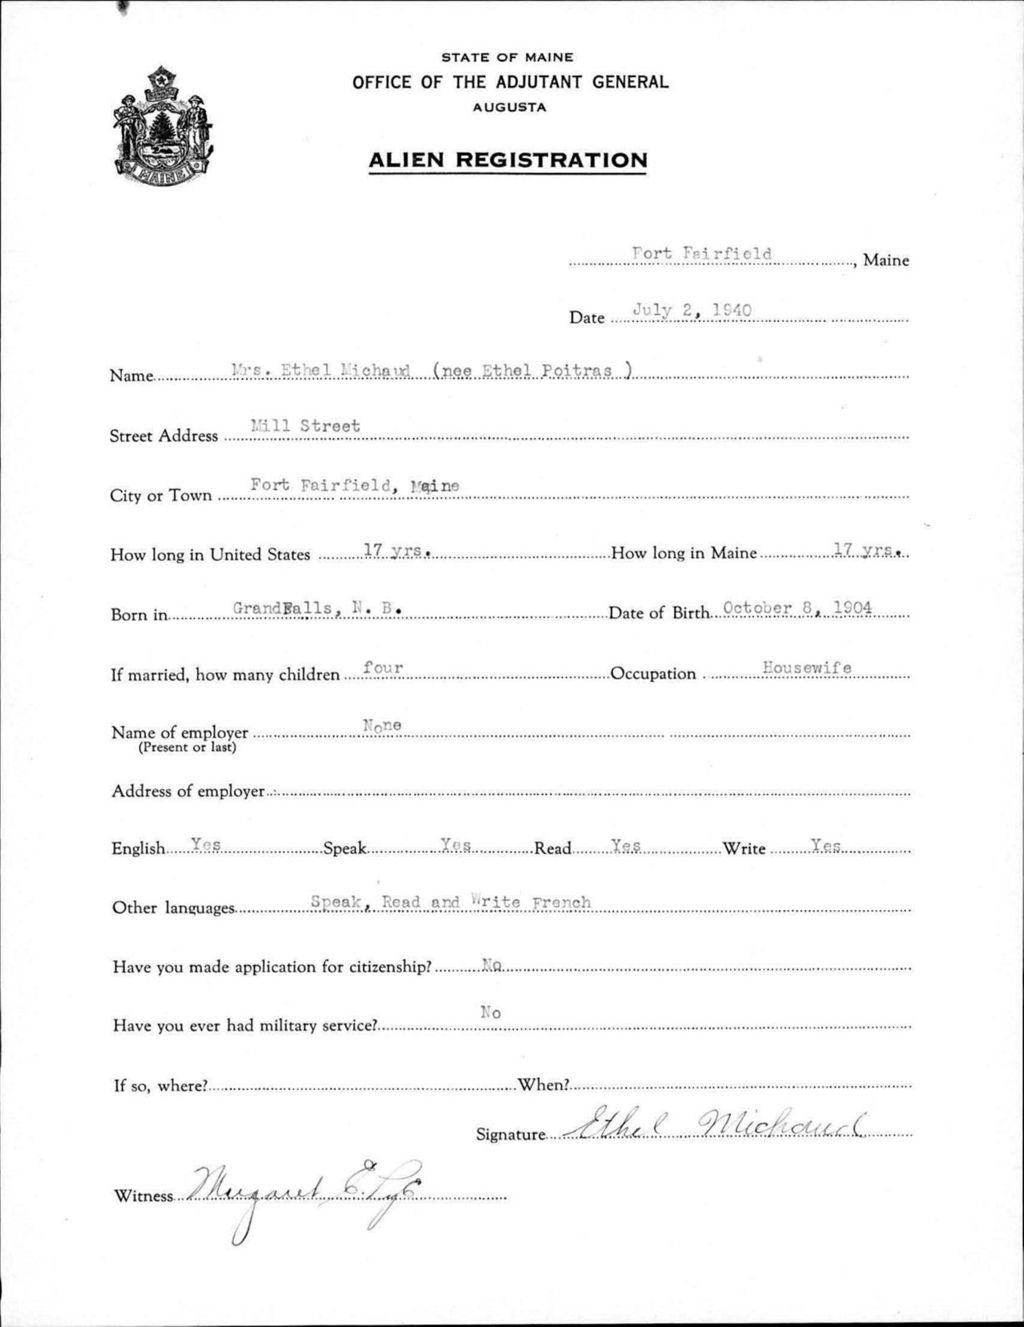 STATE OF MAINE
OFFICE OF THE ADJUTANT GENERAL
AUGUSTA
ALIEN REGISTRATION
MAINE
Fort Fairfield, Maine
Date July 2, 1940
Name Mrs. Ethel Michaud (nee Ethel Poitras )
Street Address Mill Street
City or Town Fort Fairfield, Maine
How long in United States 17 yrs. How long in Maine 17 yrs.
Born in GrandFalls, N. B. Date of Birth October 8, 1904
If married, how many children four Occupation Housewife
Name of employer None
(Present or last)
Address of employer
English Yes Speak Yes Read Yes Write Yes
Other languages Speak, Read and Write French
Have you made application for citizenship? No
Have you ever had military service? No
If so, where? When?
Signature Ethel Michaud
Witness Margaret E.